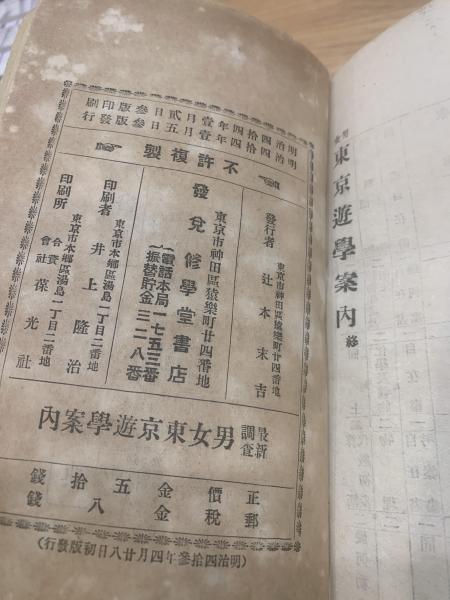 東京遊學案內 終
明治四拾四年壹月貳日參版印刷
明治四拾四年壹月五日參版發行
不許複製
東京市神田區猿樂町廿四番地
發行者 辻本末吉
東京市神田區猿樂町廿四番地
發兌 修學堂書店
電話本局一七五三番
振替貯金三二八番
東京市本鄉區湯島一丁目二番地
印刷者 井上隆治
東京市本鄉區湯島一丁目二番地
印刷所 合資會社 葆光社
最新調査 男女東京遊學案內
正價金五拾錢
郵稅金八錢
(明治四拾參年四月廿八日初版發行)